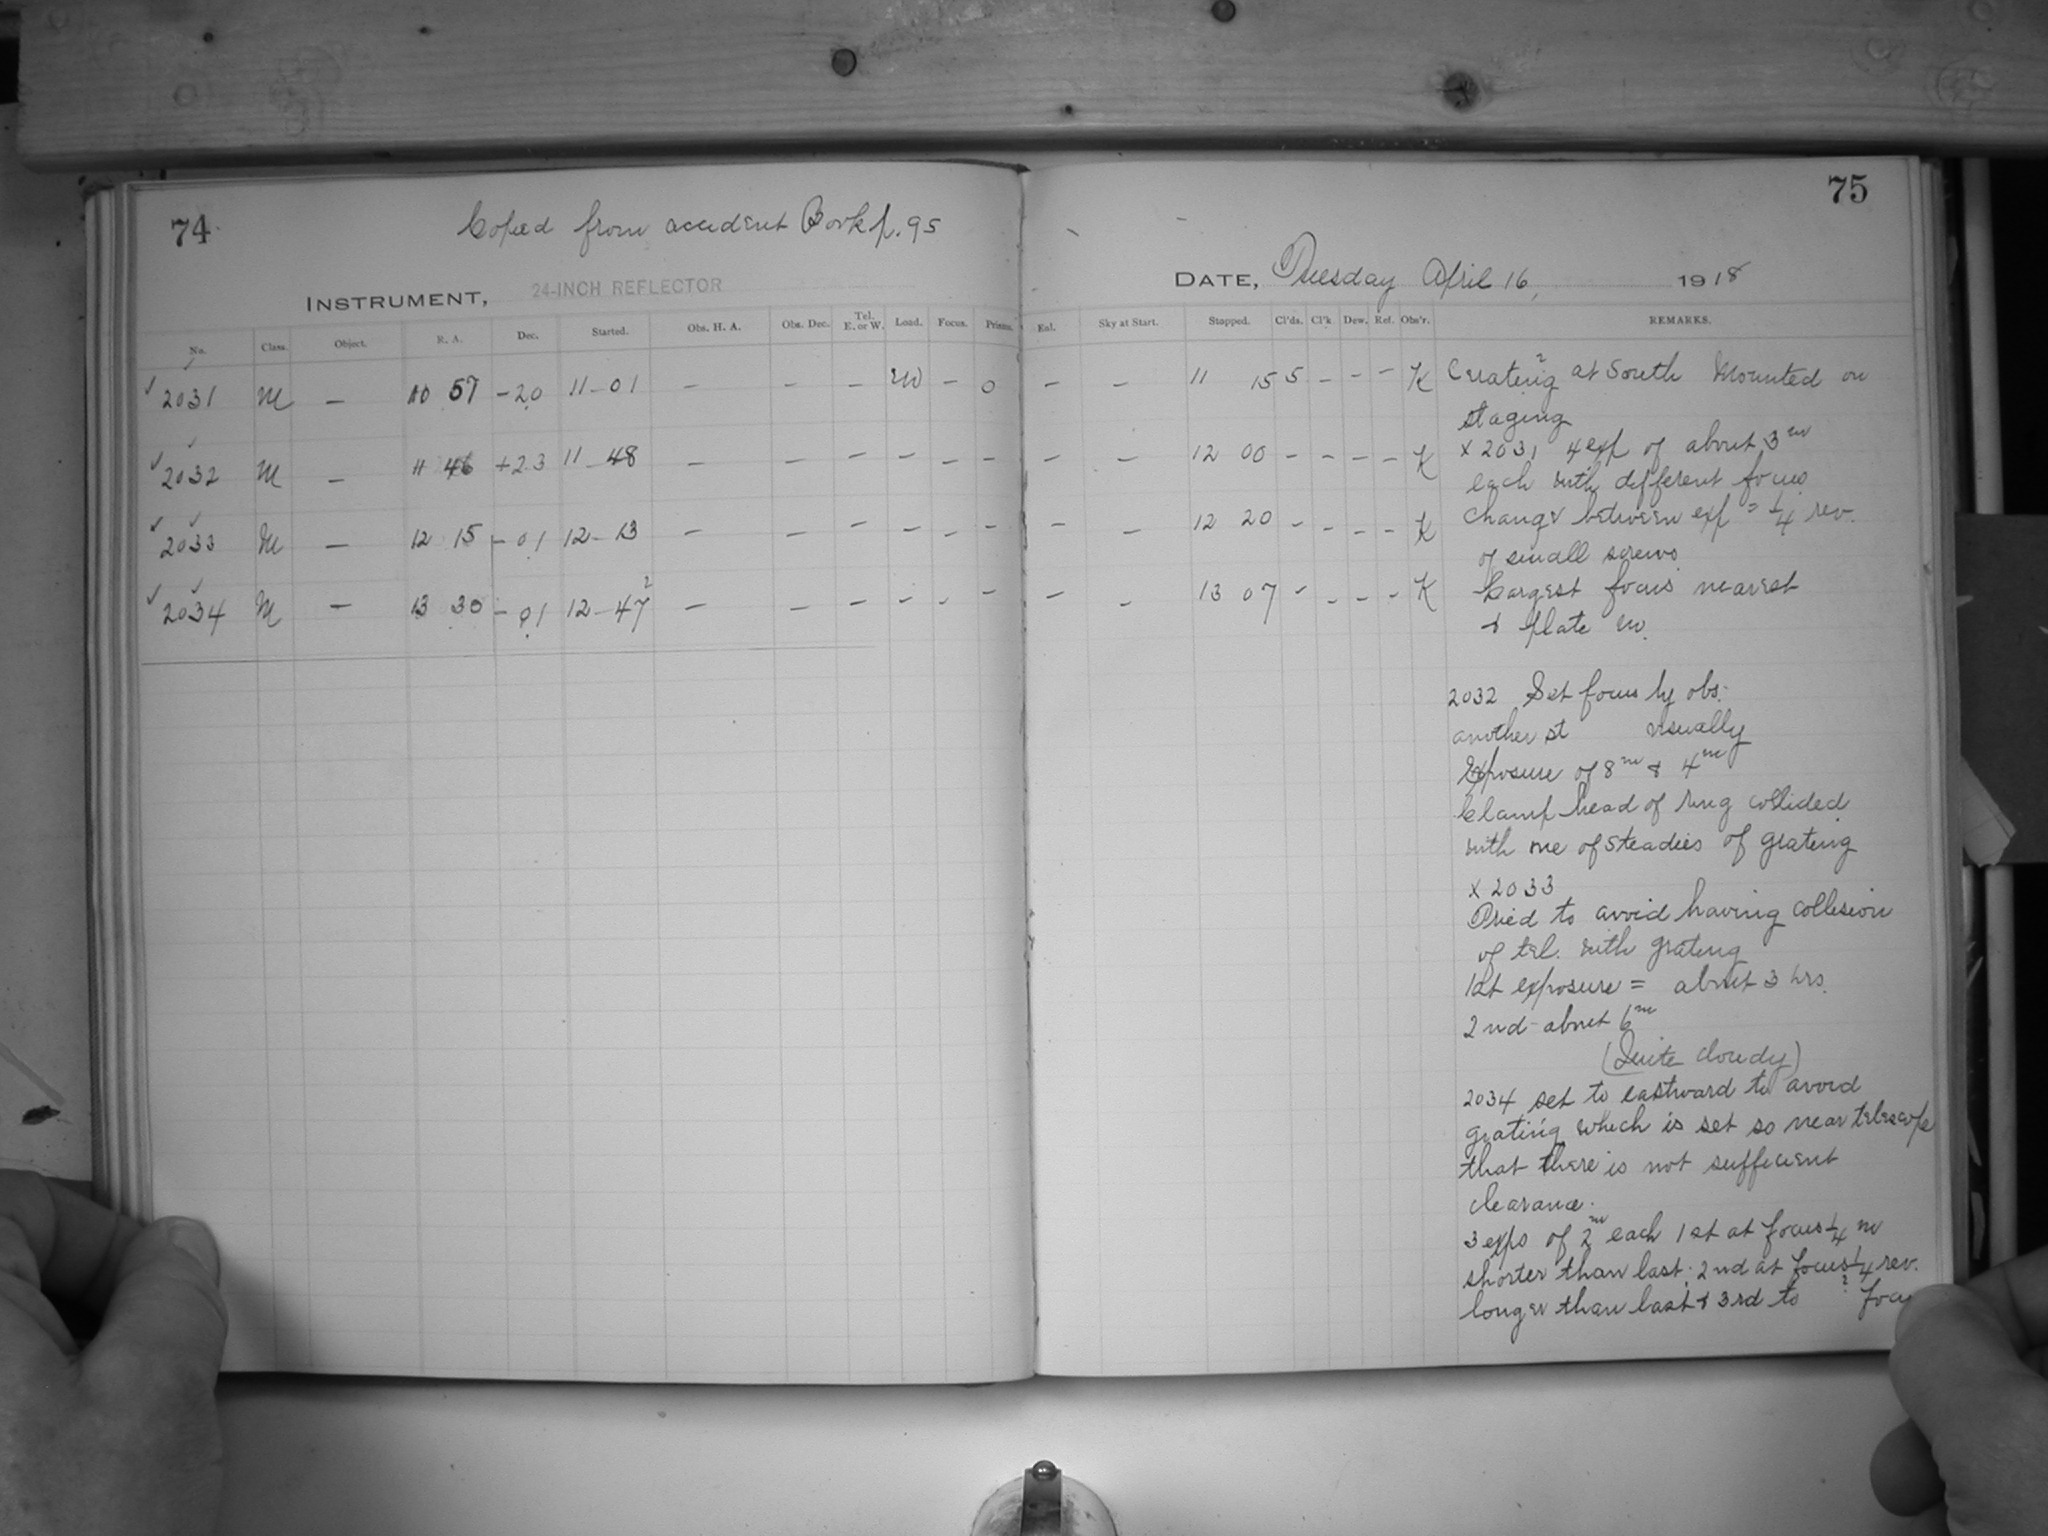 74
Copied from accident Book p. 95
INSTRUMENT, 24-INCH REFLECTOR
No. Class. Object. R. A. Dec. Started. Obs. H. A. Obs. Dec. Tel. E. or W. Load. Focus. Prisms.
2031 M — 10 57 -20 11-01 — — — — 0
2032 M — 11 46 +23 11-48 — — — — — —
2033 M — 12 15 -01 12-13 — — — — — —
2034 M — 13 30 -01 12-47 ? — — — — - —
75
DATE, Tuesday April 16, 1918
Enl. Sky at Start. Stopped. Cl'ds. Cl'k Dew. Ref. Obs'r. REMARKS.
— — 11 15 5 - - - K
— — 12 00 - - - - K
— — 12 20 - - - - K
— — 13 07 - - - - K
Grating ? at South Mounted on
staging
x 2031 4 exp of about 3m
each with different focus
change between exp = 1/4 rev.
of small screws
Largest focus nearest
& plate
2032 Set focus by obs.
another st visually
Exposure of 8m & 4m
Clamp head of ring collided
with one of steadies of grating
x 2033
Tried to avoid having collision
of tel. with grating
1st exposure = about 3 hrs.
2nd - about 6m
(Quite cloudy)
2034 set to eastward to avoid
grating which is set so near telescope
that there is not sufficient
clearance.
3 exps of 2m each 1st at focus 1/4
shorter than last; 2nd at focus 1/4 rev.
longer than last & 3rd to ?